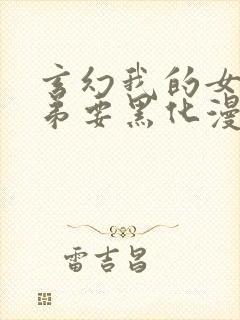 玄幻我的女
弟要黑化漫
雷吉昌